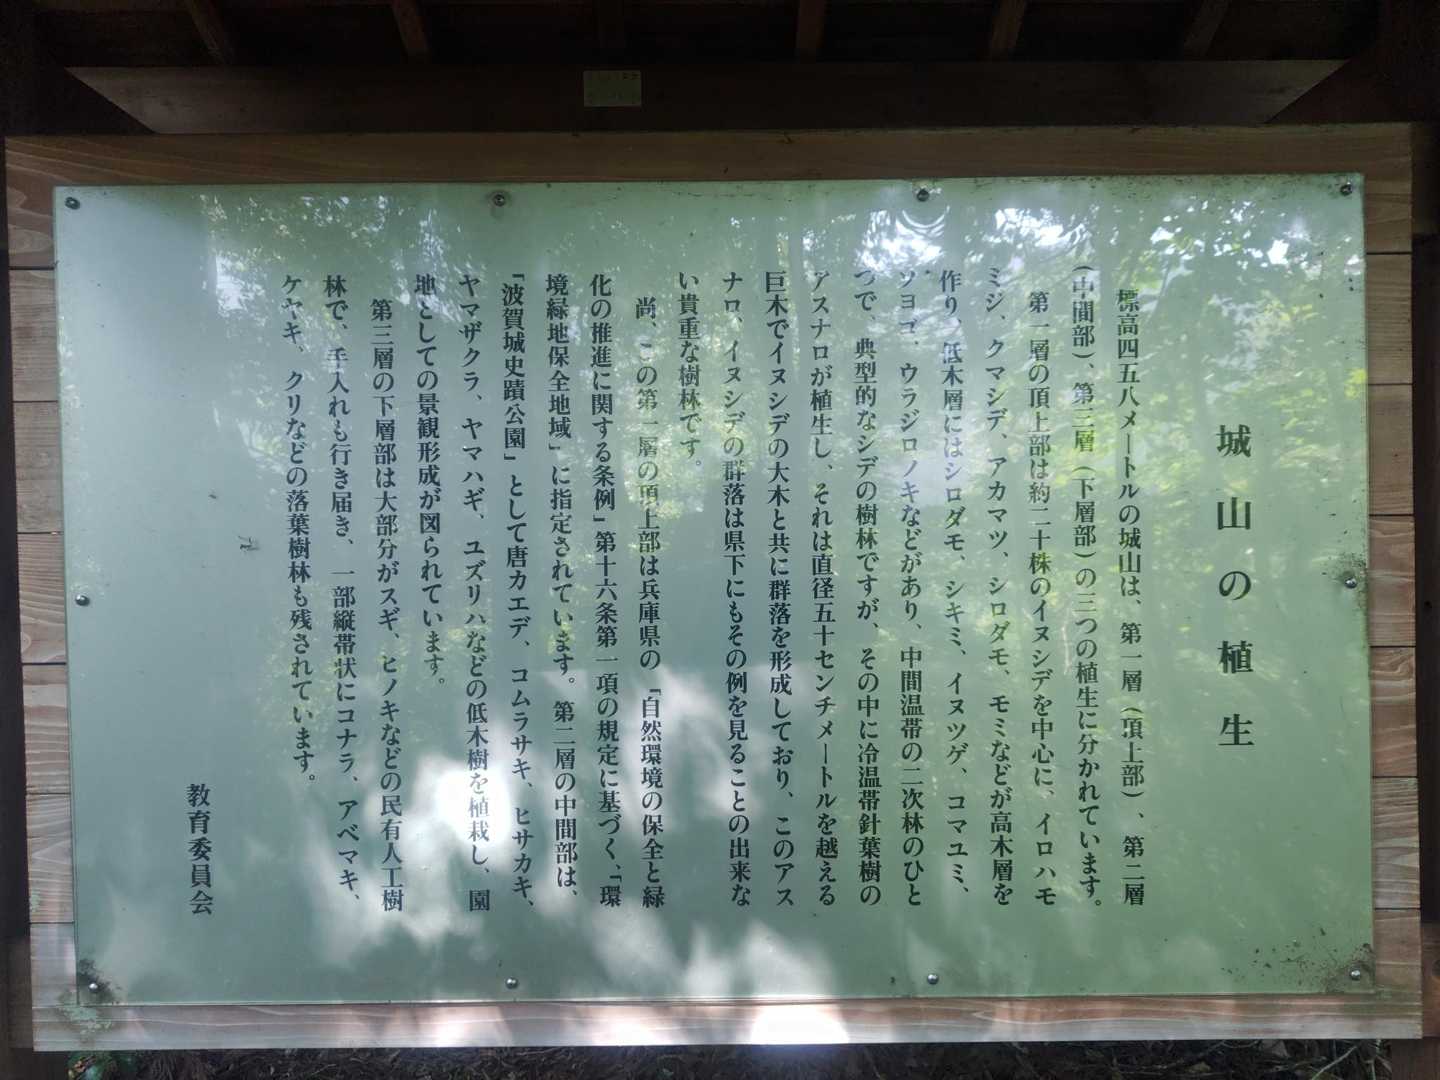 城山の植生
標高四五八メートルの城山は、第一層(頂上部)、第二層
(中間部)、第三層(下層部)の三つの植生に分かれています。
第一層の頂上部は約二十株のイヌシデを中心に、イロハモ
ミジ、クマシデ、アカマツ、シロダモ、モミなどが高木層を
作り、低木層にはシロダモ、シキミ、イヌツゲ、コマユミ、
ソヨゴ、ウラジロノキなどがあり、中間温帯の二次林のひと
つで、典型的なシデの樹林ですが、その中に冷温帯針葉樹の
アスナロが植生し、それは直径五十センチメートルを越える
巨木でイヌシデの大木と共に群落を形成しており、このアス
ナロ、イヌシデの群落は県下にもその例を見ることの出来な
い貴重な樹林です。
尚、この第一層の頂上部は兵庫県の「自然環境の保全と緑
化の推進に関する条例」第十六条第一項の規定に基づく、「環
境緑地保全地域」に指定されています。第二層の中間部は、
「波賀城史蹟公園」として唐カエデ、コムラサキ、ヒサカキ、
ヤマザクラ、ヤマハギ、ユズリハなどの低木樹を植栽し、園
地としての景観形成が図られています。
第三層の下層部は大部分がスギ、ヒノキなどの民有人工樹
林で、手入れも行き届き、一部縦帯状にコナラ、アベマキ、
ケヤキ、クリなどの落葉樹林も残されています。
教育委員会